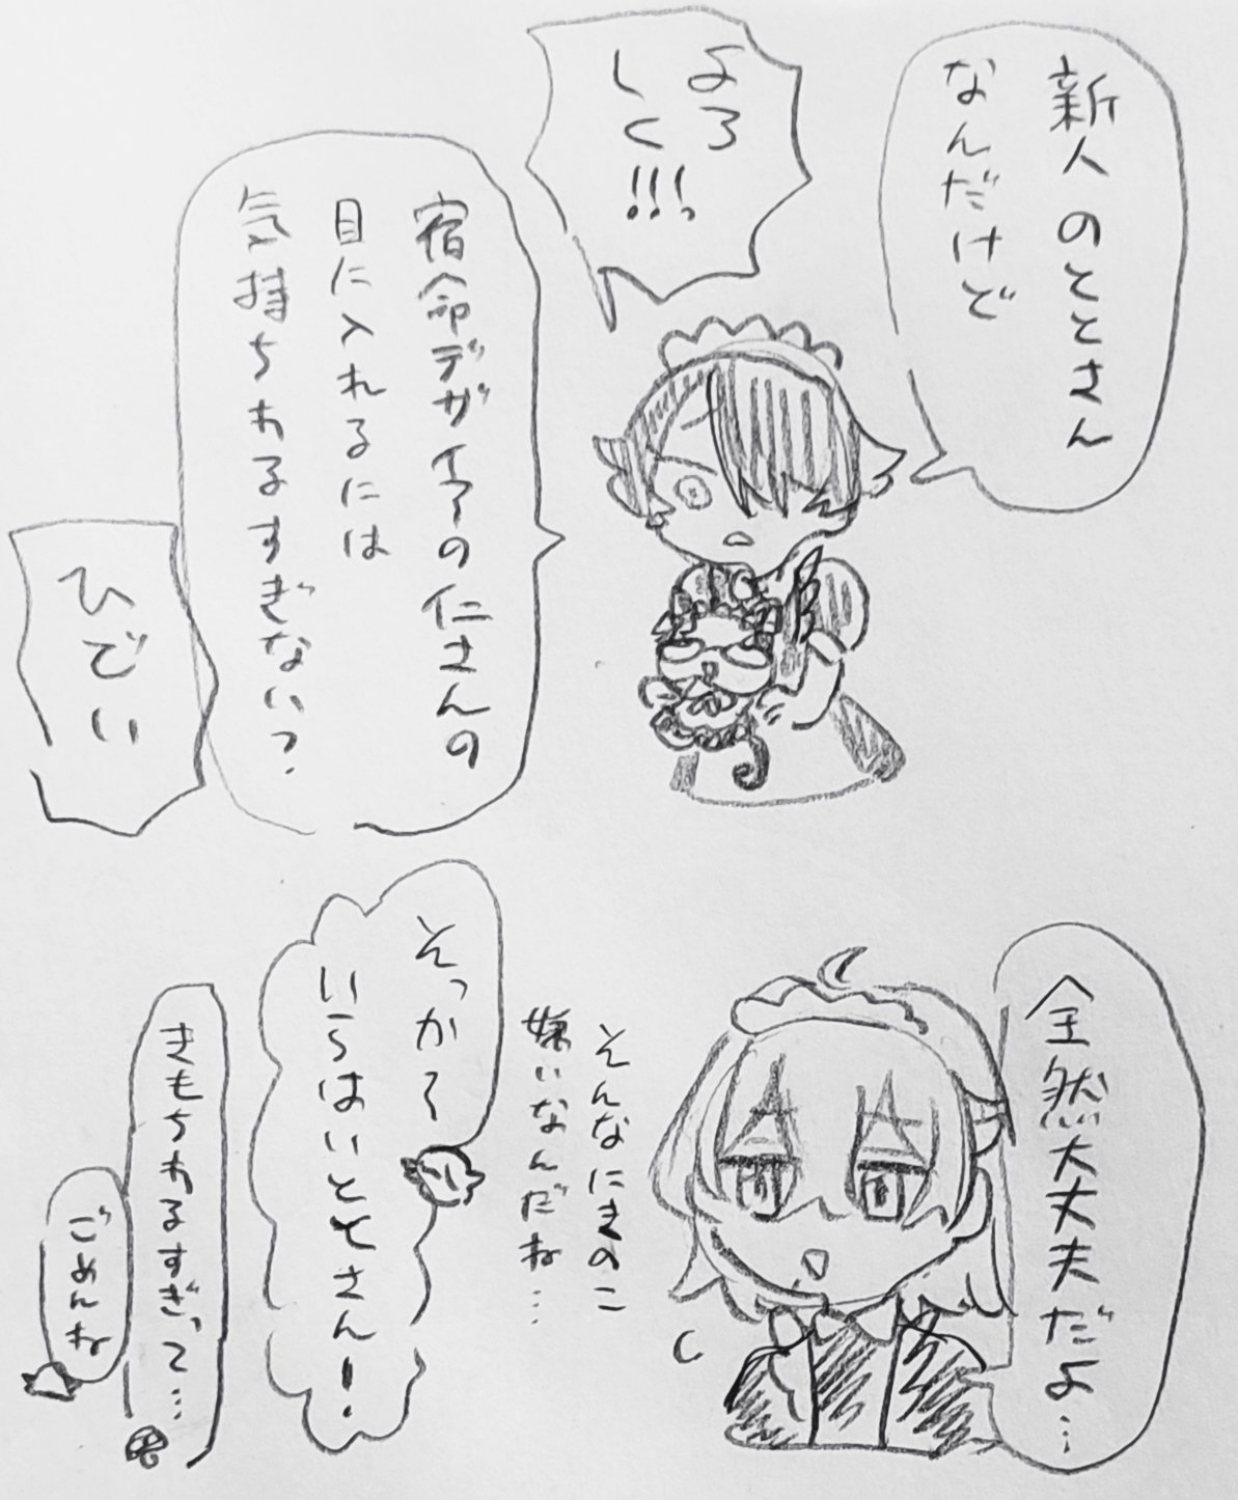 新人のととさん
なんだけど
よろ
しく!!!
宿命デザイアの仁さんの
目に入れるには
気持ちわるすぎない?
ひどい
全然大丈夫だよ…
そんなにきのこ
嫌いなんだね…
そっか〜
いらはいととさん!
きもちわるすぎって…
ごめんね